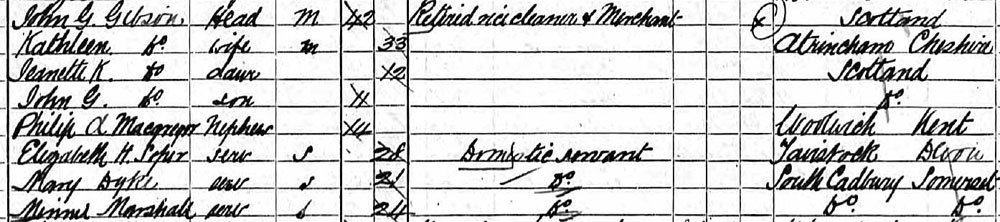 John G. Gibson Head M 42 Retired rice cleaner & Merchant Scotland
Kathleen Do wife m 33 Altrincham Cheshire
Jeanette K. Do daur 12 Scotland
John G. Do son 11 Do
Philip L Macgregor Nephew 14 Woolwich Kent
Elizabeth H. serv s 28 Domestic servant Tavistock Devon
Mary Dyke serv s 21 Do South Cadbury Somerset
Minnie Marshall serv s 24 Do Do Do